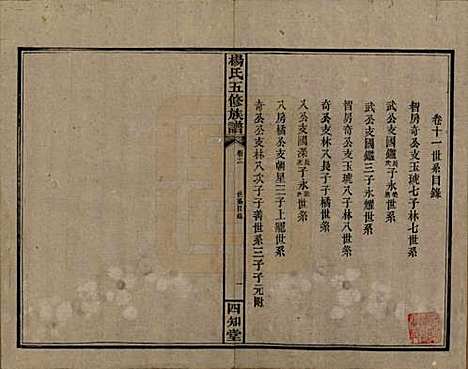 卷十一世系目錄
智房奇公支玉琥七子林七世系
武公支國鑑子永世系
武公支國鑑三子永耀世系
智房奇公支玉琥八子林八世系
奇公支林八長子子橘世系
八公支國深子永世系
八房橘公支朝星三子上羆世系
奇公公支林八次子子善世系三子子元附
楊氏五修族譜
卷十一
世系目錄
一
四知堂